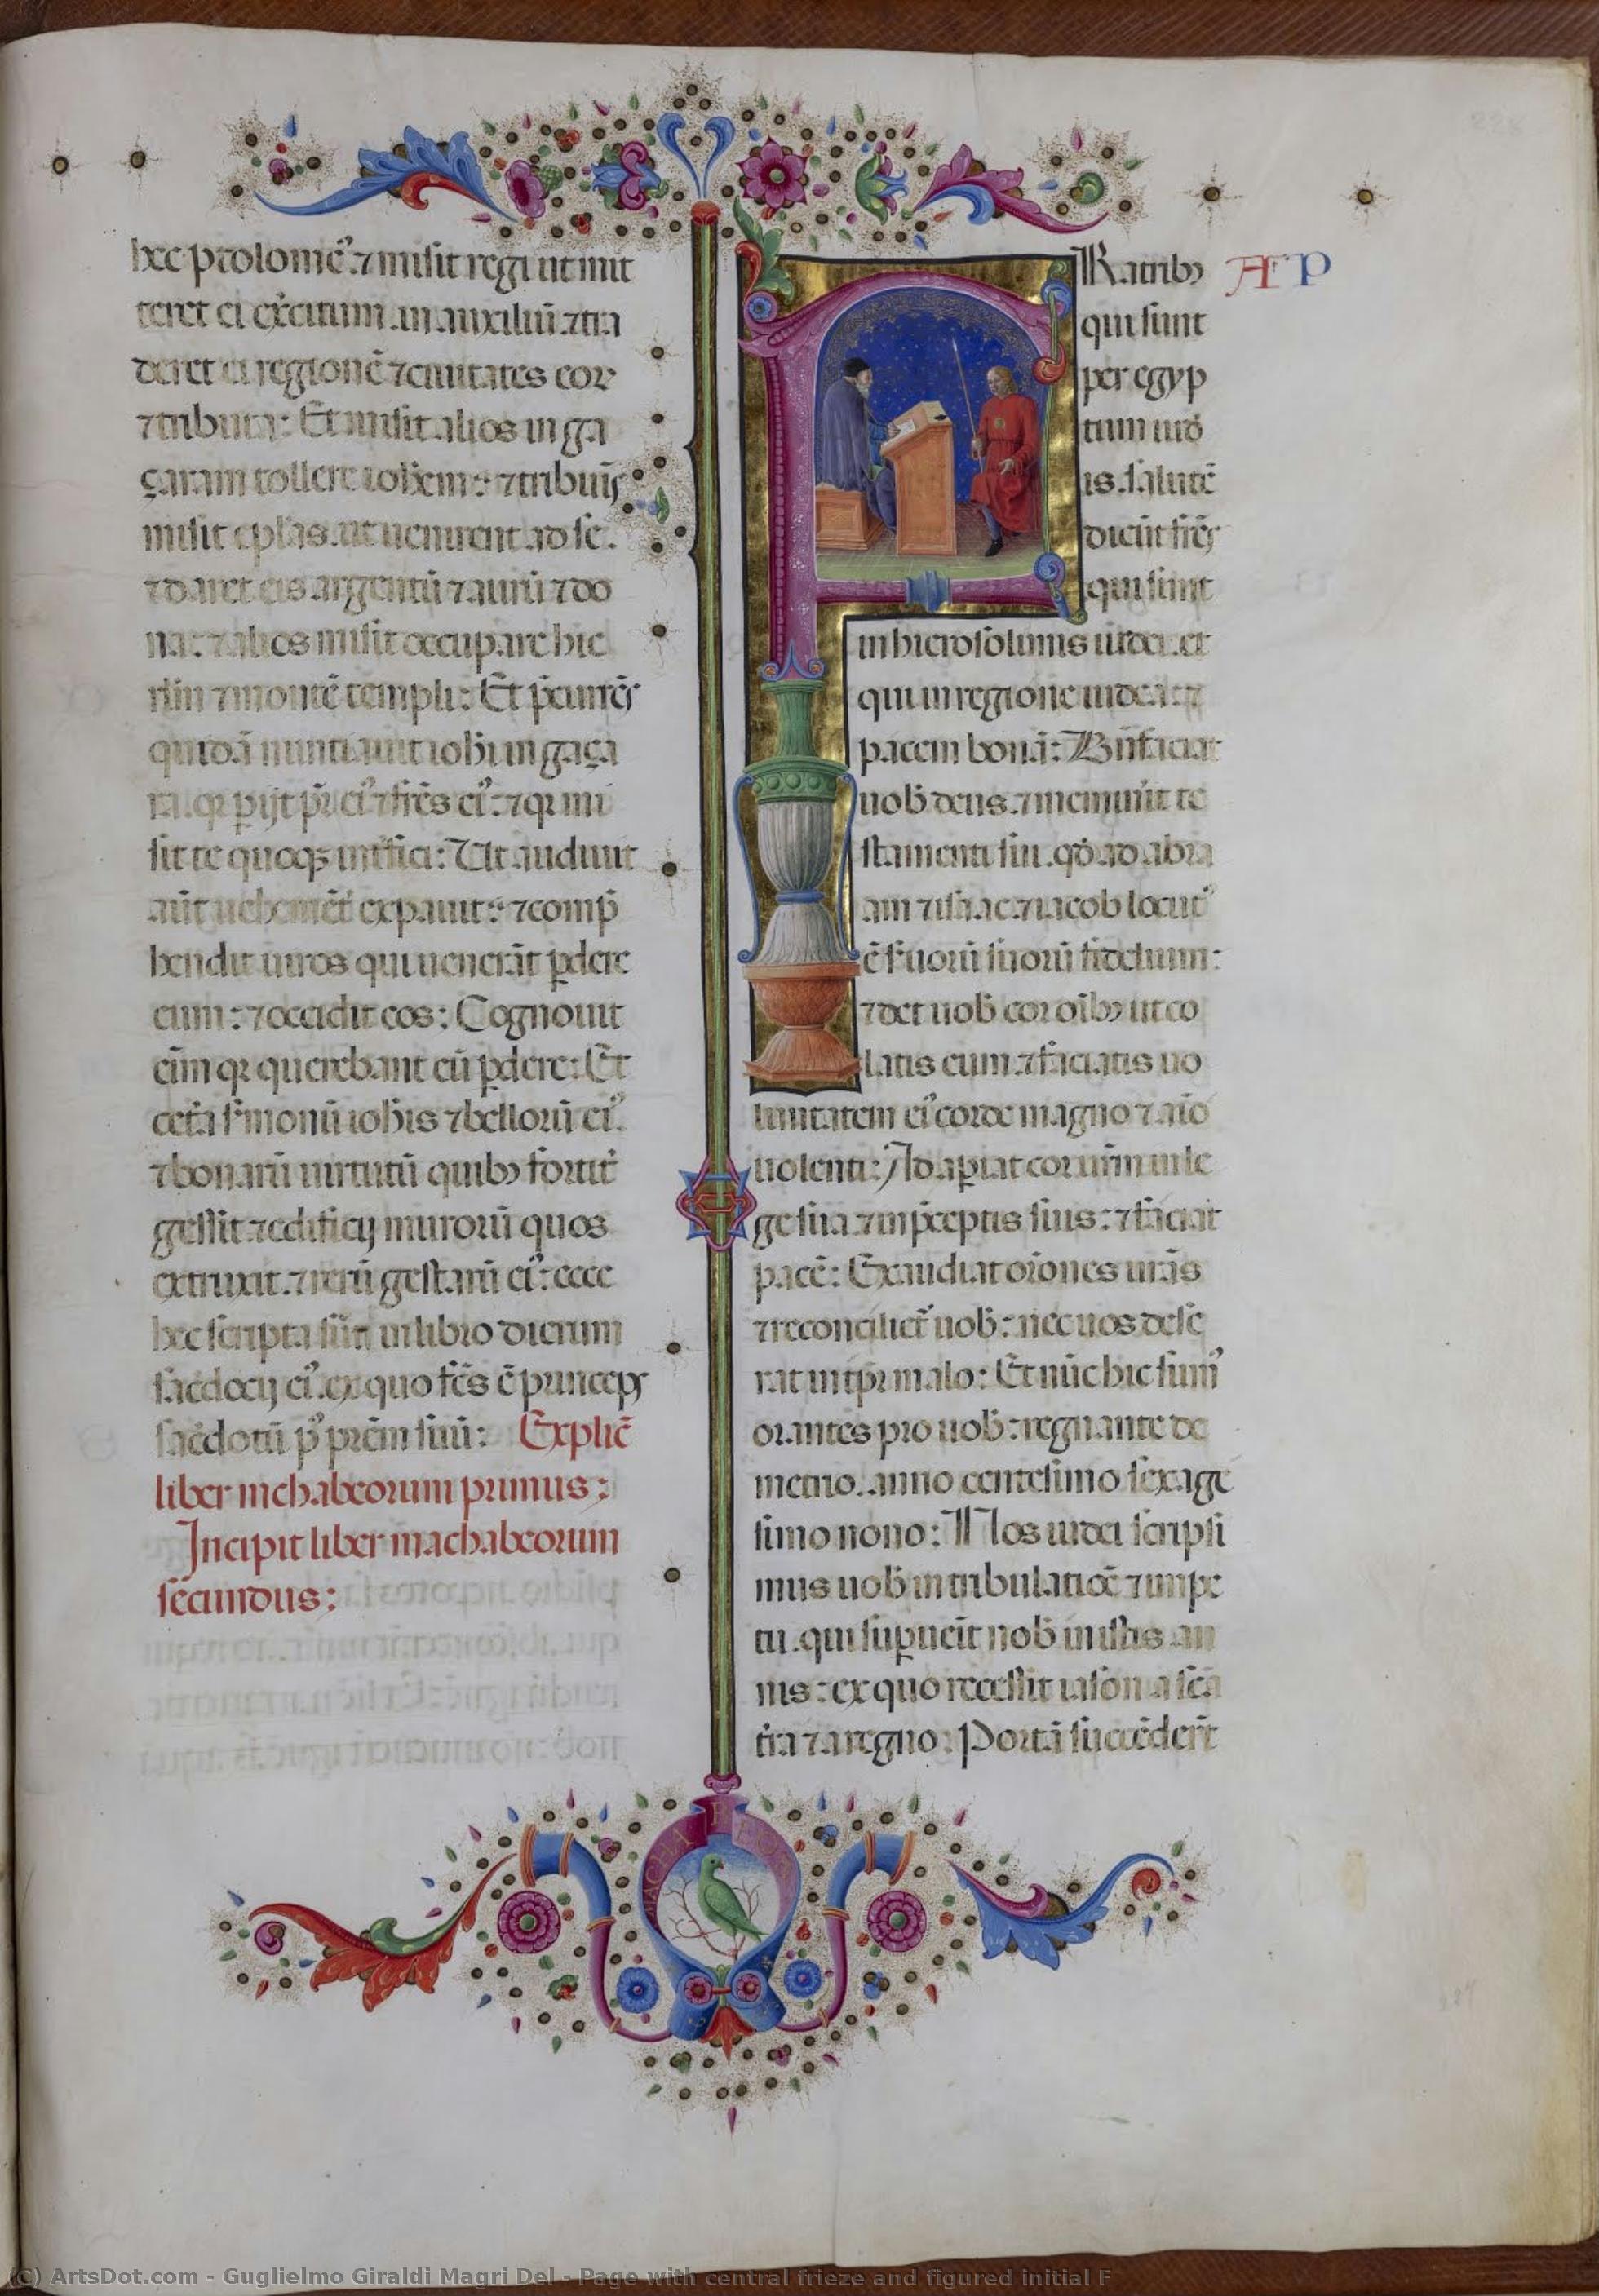 hec ptolomeꝰ. ⁊ misit regi ut mit
teret ei exẽitum in auxiliũ. ⁊ tra
deret ei regionẽ ⁊ ciuitates eoꝝ
⁊ tributa: Et misit alios in ga
çaram tollere ioh̃em: ⁊ tribuñs
misit eplãs. ut uenirent ad se.
⁊ daret eis argentũ ⁊ aurũ ⁊ do
na: ⁊ alios misit occupare hie
rlm̃ ⁊ montẽ templi: Et p̃curr̃es
quidã nuntiauit ioh̃i in gaça
ra. qꝫ perijt pr̃ eiꝰ ⁊ fr̃es eiꝰ: ⁊ qꝫ mi
sit te quoqꝫ int̃fici: Ut audiuit
aũt uehemẽt̃ expauit: ⁊ comp̃
hendit uiros qui uenerãt p̱dere
eum: ⁊ occidit eos: Cognouit
eñm qꝫ querebant eũ p̱dere: Et
cet̃a s̃monũ ioh̃is ⁊ bellorũ eiꝰ.
⁊ bonarũ uirtutũ quibꝫ fortit̃
gessit ⁊ edificij murorũ quos
extruxit. ⁊ rerũ gestarũ eiꝰ: ecce
hec scripta sũt in libro dierum
sac̃docij eiꝰ. ex quo fc̃s ẽ princeps
sac̃dotũ pꝰ prẽm suũ: Explic̃
liber machabeorum primus:
Incipit liber machabeorum
secundus:
FRatribꝫ A P
qui sunt
per egyp
tum iud̃
is. salutẽ
dicũt fr̃es
qui sunt
in hierosolimis iudei. et
qui in regione iudea: ⁊
pacem bonã: Bñfaciat
uob̃ deus. ⁊ meminĩt te
stamenti sui. qd̃ ad abra
am ⁊ isaac. ⁊ iacob locutꝰ
ẽ s̃uorũ suorũ fidelium:
⁊ det uob̃ cor oĩbꝫ ut co
latis eum. ⁊ faciatis uo
luntatem eiꝰ corde magno ⁊ aĩo
uolenti: Adap̱iat cor ur̃m in le
ge sua. ⁊ in p̃ceptis suis: ⁊ faciat
pacẽ: Exaudiat or̃ones ur̃as
⁊ reconcilietꝰ uob̃: nec uos dese
rat in tp̃r malo: Et nũc hic sumꝰ
orantes pro uob̃: regnante de
metrio. anno centesimo sexage
simo nono: Nos iudei scripsi
mus uob̃ in tribulatiõe ⁊ impe
tu. qui sup̱ueĩt nob̃ in istis an
nis: ex quo recessit iason a sc̃a
t̃ra ⁊ a regno: Portã succẽder̃t
MACHABEOR
(C) ArtsDot.com - Guglielmo Giraldi Magri Del - Page with central frieze and figured initial F